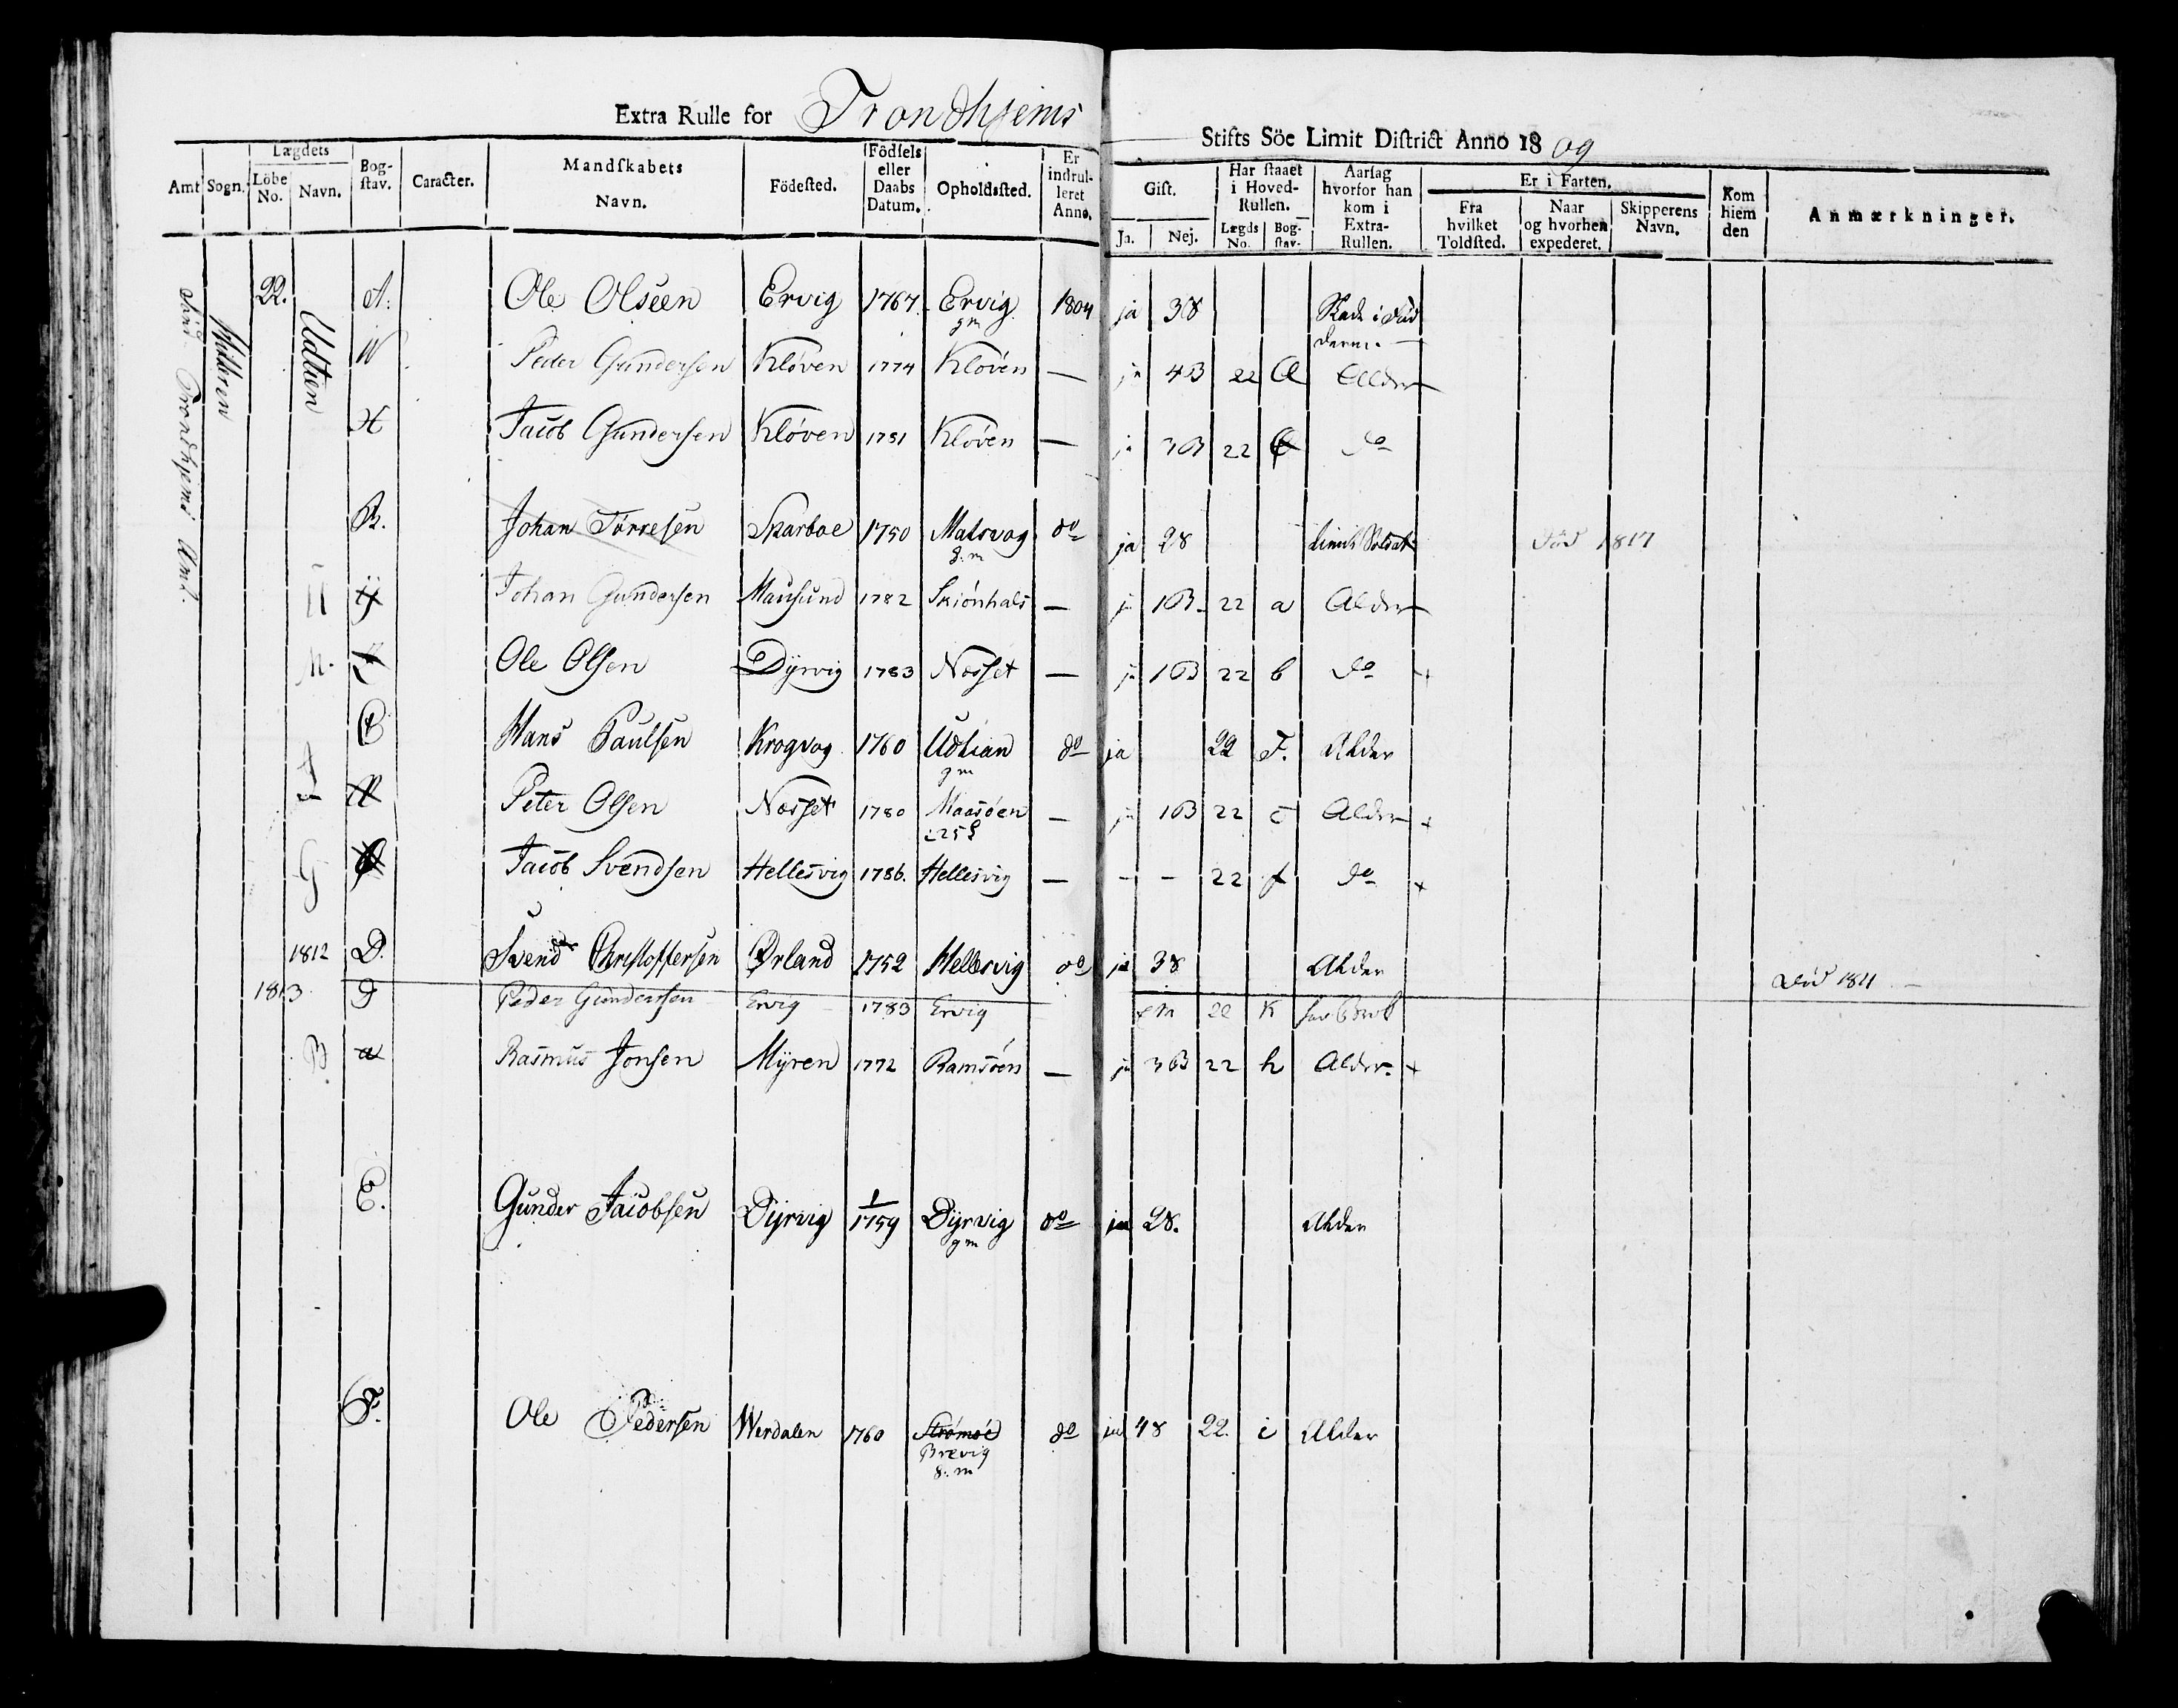 Extra Rulle for Trondhjems Stifts Söe Limit District Anno 1809
Amt Sogn. Lægdets Löbe No. Navn. Bog-stav. Caracter. Mandskabets Navn. Födested. Födsels eller Daabs Datum. Opholdssted. Er indrul-leret Anno. Gift. Ja. Nej. Har staaet i Hoved-Rullen. Lægds No. Bog-stav. Aarsag hvorfor han kom i Extra-Rullen. Er i Farten. Fra hvilket Toldsted. Naar og hvorhen expederet. Skipperens Navn. Kom hiem den Anmærkninger.
Trondhjems Amt.
Hitteren
22. Udtian A. Ole Olseen Ervig 1767 Ervig 1804 ja 38 Skade i
gm
Peder Gundersen Klöven 1774 Klöven — ja 4B 22 Alder
Jacob Gundersen Klöven 1781 Klöven — ja 3B 22 do
B. Johan Torresen Skarboe 1750 Matsvog do ja 28 Limit Soldat Död 1817
g.m
Johan Gundersen Mausund 1782 Skiönhals — ja 1B 22 a Alder
M. Ole Olsen Dyrvig 1783 Nosset — ja 1B 22 b do +
Hans Paulsen Krogvog 1760 Udtian do ja 22 F. Alder
gm
Peter Olsen Nosset 1780 Maasöen — ja 1B 22 c Alder +
G Jacob Svendsen Hellesvig 1786. Hellesvig — - - 22 f do +
1812 D. Svend Christoffersen Örland 1752 Hellesvig do ja 38 Alder Död 1811
1813 Peder Gundersen Ervig 1783 Ervig 22 K
B a Rasmus Jonsen Myren 1772 Ramsöen — ja 3B 22 h Alder +
E. Gunder Jacobsen Dyrvig 1/1759 Dyrvig do ja 28. Alder
gm
F. Ole Pedersen Werdalen 1760 Strömöe do ja 48 22. i Alder
Brevig
g.m